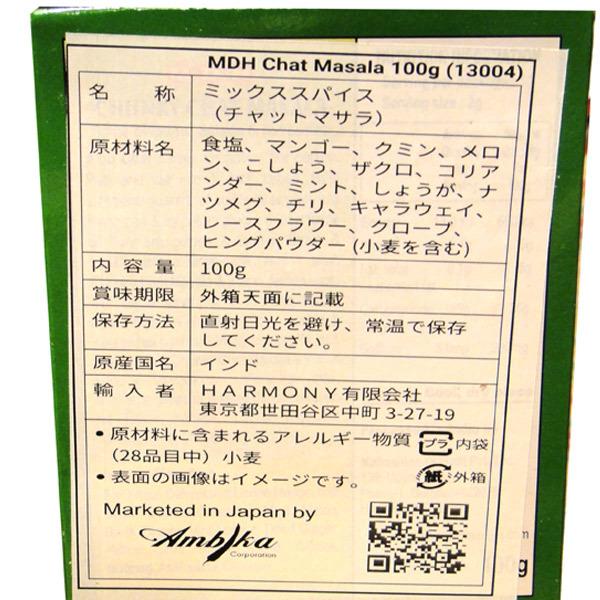 MDH Chat Masala 100g (13004)
名称 ミックススパイス
（チャットマサラ）
原材料名 食塩、マンゴー、クミン、メロ
ン、こしょう、ザクロ、コリア
ンダー、ミント、しょうが、ナ
ツメグ、チリ、キャラウェイ、
レースフラワー、クローブ、
ヒングパウダー (小麦を含む)
内容量 100g
賞味期限 外箱天面に記載
保存方法 直射日光を避け、常温で保存
してください。
原産国名 インド
輸入者 HARMONY有限会社
東京都世田谷区中町 3-27-19
• 原材料に含まれるアレルギー物質 プラ 内袋
（28品目中）小麦
• 表面の画像はイメージです。 紙 外箱
Marketed in Japan by
Ambika
Corporation